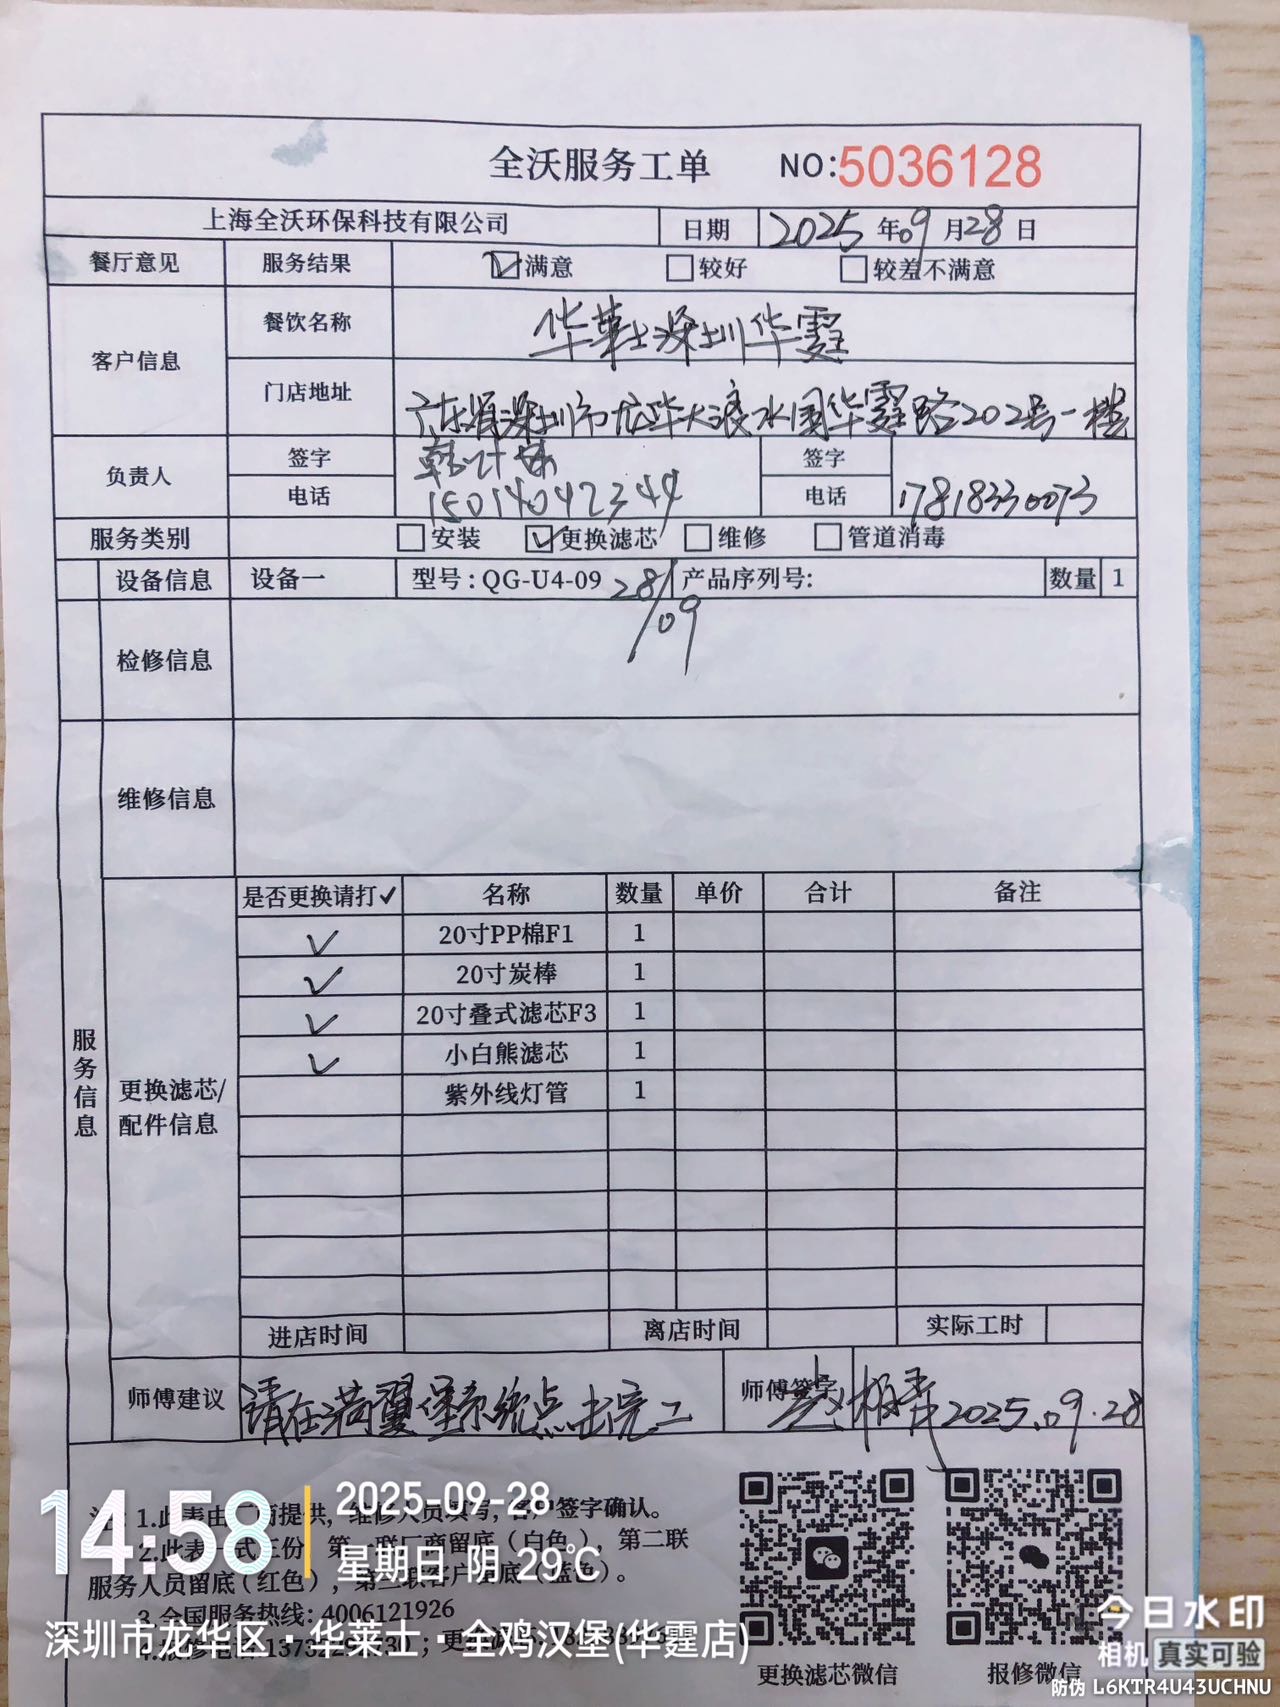 全沃服务工单 NO:5036128
上海全沃环保科技有限公司 日期 2025 年 09 月 28 日
餐厅意见 服务结果 满意 较好 较差不满意
客户信息 餐饮名称 华莱士深圳华霆
门店地址 广东省深圳市龙华大浪水围华霆路202号一楼
负责人 签字 签字
电话 15014042344 电话 17818330073
服务类别 安装 更换滤芯 维修 管道消毒
设备信息 设备一 型号:QG-U4-09 产品序列号: 数量 1
28/09
检修信息
维修信息
服务信息
更换滤芯/配件信息
是否更换请打✓ 名称 数量 单价 合计 备注
✓ 20寸PP棉F1 1
✓ 20寸炭棒 1
✓ 20寸叠式滤芯F3 1
✓ 小白熊滤芯 1
紫外线灯管 1
进店时间 离店时间 实际工时
师傅建议 请在 堡系统点击完工 师傅签字 2025.09.28
注: 1.此表由厂商提供, 维修人员填写, 客户签字确认。
2.此表一式三份, 第一联厂商留底(白色), 第二联
服务人员留底(红色), 第三联客户留底(蓝色)。
3.全国服务热线: 4006121926
4.报修电话
更换滤芯微信 报修微信
14:58
2025-09-28
星期日 阴 29℃
深圳市龙华区·华莱士·全鸡汉堡(华霆店)
今日水印
相机 真实可验
防伪 L6KTR4U43UCHNU